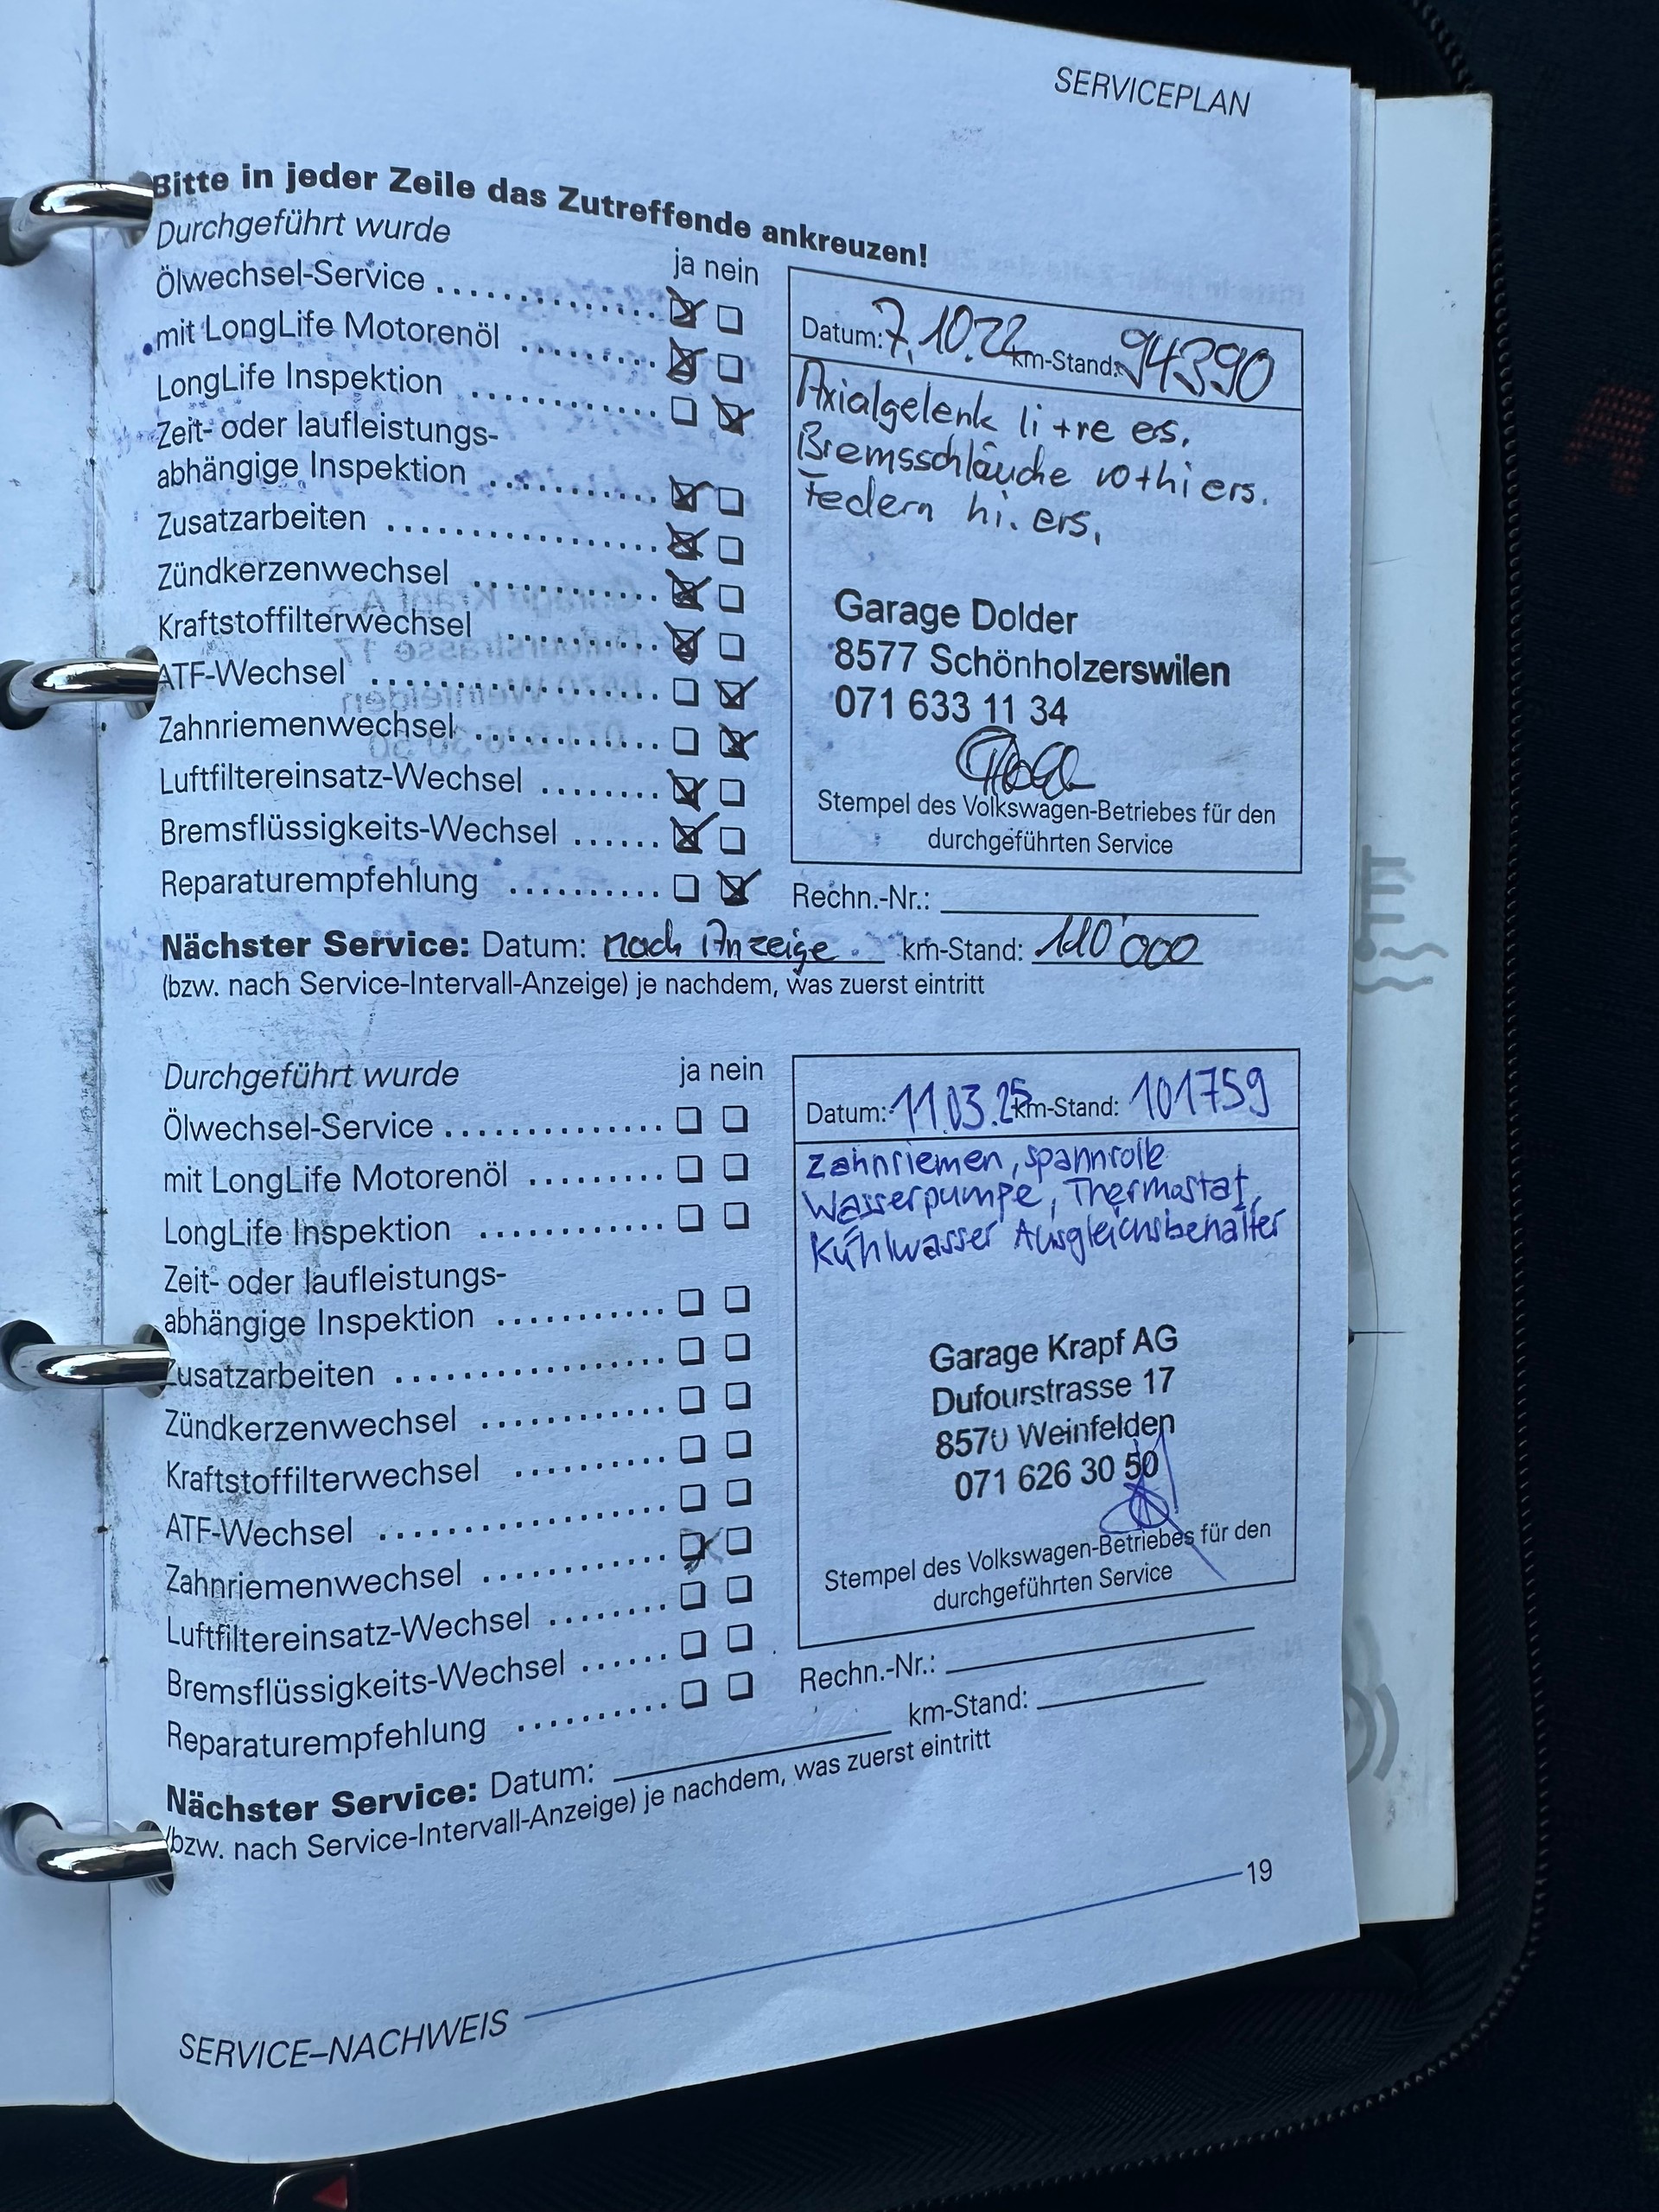 SERVICEPLAN
Bitte in jeder Zeile das Zutreffende ankreuzen!
Durchgeführt wurde
ja nein
Ölwechsel-Service
mit LongLife Motorenöl
LongLife Inspektion
Zeit- oder laufleistungs-
abhängige Inspektion
Zusatzarbeiten
Zündkerzenwechsel
Kraftstoffilterwechsel
ATF-Wechsel
Zahnriemenwechsel
Luftfiltereinsatz-Wechsel
Bremsflüssigkeits-Wechsel
Reparaturempfehlung
Datum: 7.10.22 km-Stand: 94390
Axialgelenk li+re es.
Bremsschläuche vo+hi ers.
Federn hi. ers.
Garage Dolder
8577 Schönholzerswilen
071 633 11 34
Stempel des Volkswagen-Betriebes für den
durchgeführten Service
Rechn.-Nr.:
Nächster Service: Datum: nach Anzeige. km-Stand: 110'000
(bzw. nach Service-Intervall-Anzeige) je nachdem, was zuerst eintritt
Durchgeführt wurde
ja nein
Ölwechsel-Service
mit LongLife Motorenöl
LongLife Inspektion
Zeit- oder laufleistungs-
abhängige Inspektion
Zusatzarbeiten
Zündkerzenwechsel
Kraftstoffilterwechsel
ATF-Wechsel
Zahnriemenwechsel
Luftfiltereinsatz-Wechsel
Bremsflüssigkeits-Wechsel
Reparaturempfehlung
Datum: 11.03.25 km-Stand: 101759
Zahnriemen, spannrolle
Wasserpumpe, Thermostat,
Kühlwasser Ausgleichsbehälter
Garage Krapf AG
Dufourstrasse 17
8570 Weinfelden
071 626 30 50
Stempel des Volkswagen-Betriebes für den
durchgeführten Service
Rechn.-Nr.:
Nächster Service: Datum: km-Stand:
(bzw. nach Service-Intervall-Anzeige) je nachdem, was zuerst eintritt
19
SERVICE–NACHWEIS